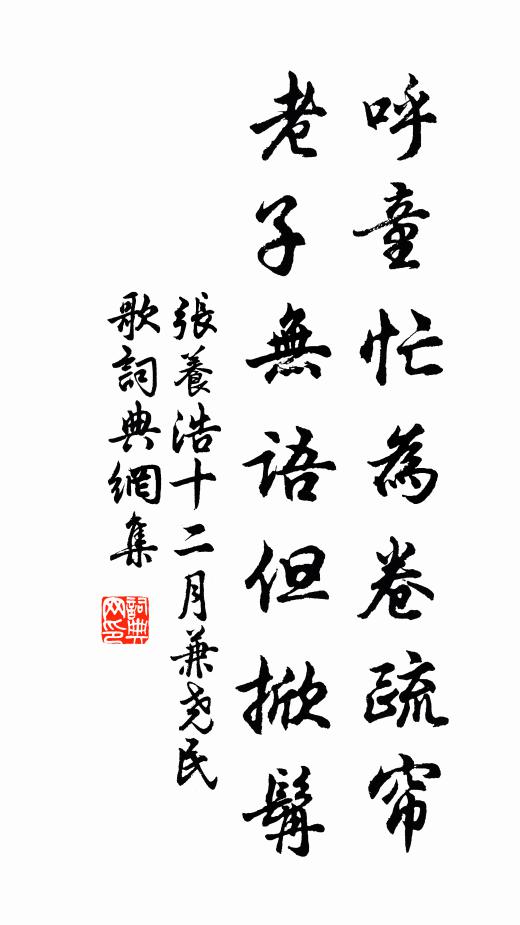 呼童忙為卷疏帘
老子無語但掀髯
張養浩十二月兼堯民
歌詞典網集
詞典网印